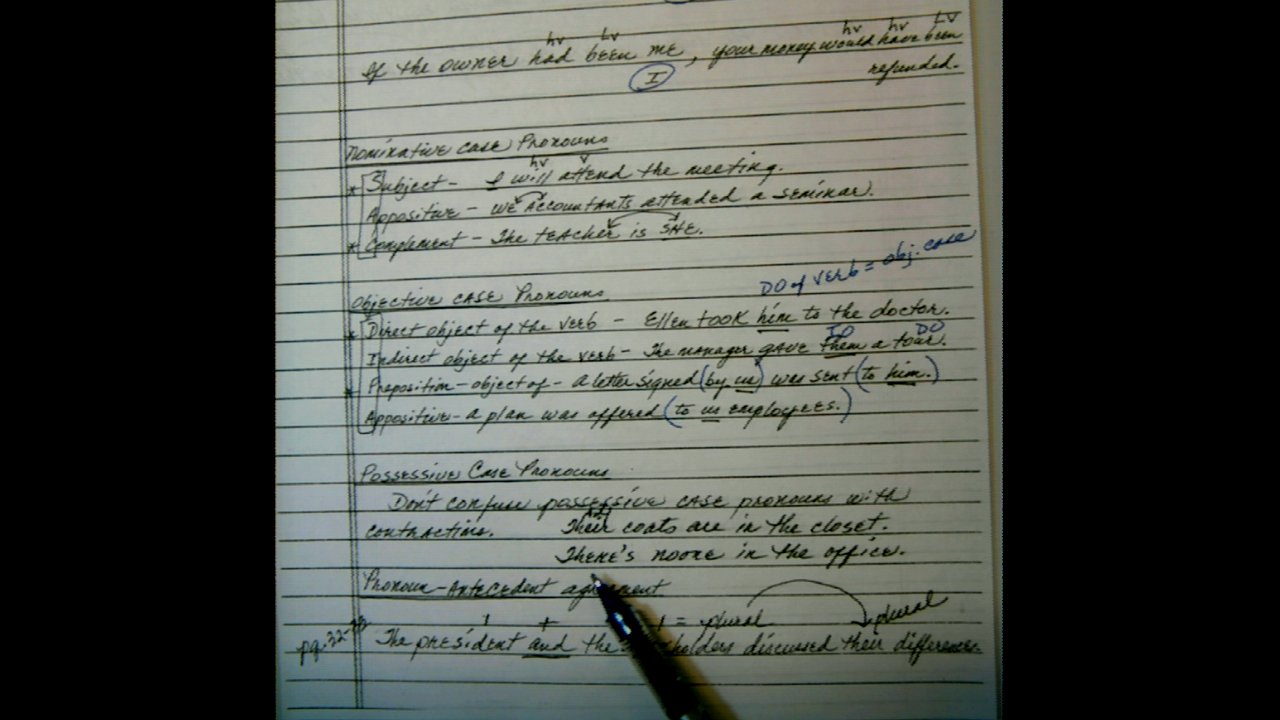 hv Lv hv hv Lv
If the owner had been me, your money would have been
I refunded.
Nominative case Pronouns
hv v
* Subject - I will attend the meeting.
Appositive - we Accountants attended a seminar.
* Complement - The teacher is SHE.
DO of verb = obj. case
Objective case Pronouns
* Direct object of the verb - Ellen took him to the doctor.
IO DO
Indirect object of the verb - The manager gave them a tour.
* Preposition - object of - a letter signed (by us) was sent (to him.)
Appositive - a plan was offered (to us employees.)
Possessive Case Pronouns
Don't confuse possessive case pronouns with
contractions. Their coats are in the closet.
There's no one in the office.
Pronoun-Antecedent agreement
1 + 1 = plural plural
pg. 32- The president and the holders discussed their differences.